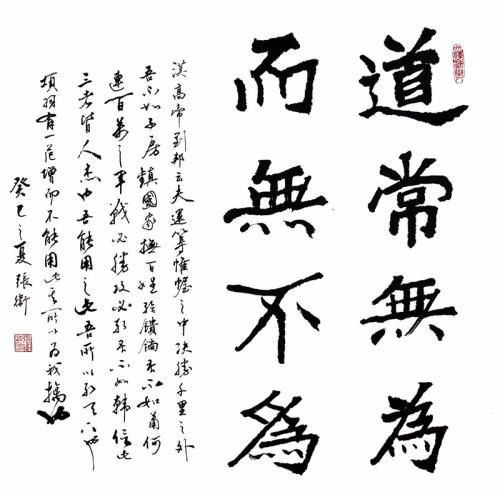 道常無為
而無不為
漢高帝劉邦云夫運筹帷幄之中决勝千里之外
吾不如子房鎮國家撫百姓給饋餉吾不如蕭何
連百萬之軍戰必勝攻必取吾不如韓信此
三者皆人杰也吾能用之此吾所以取天下也
項羽有一范增而不能用此其所以为我擒也
癸巳之夏張衛